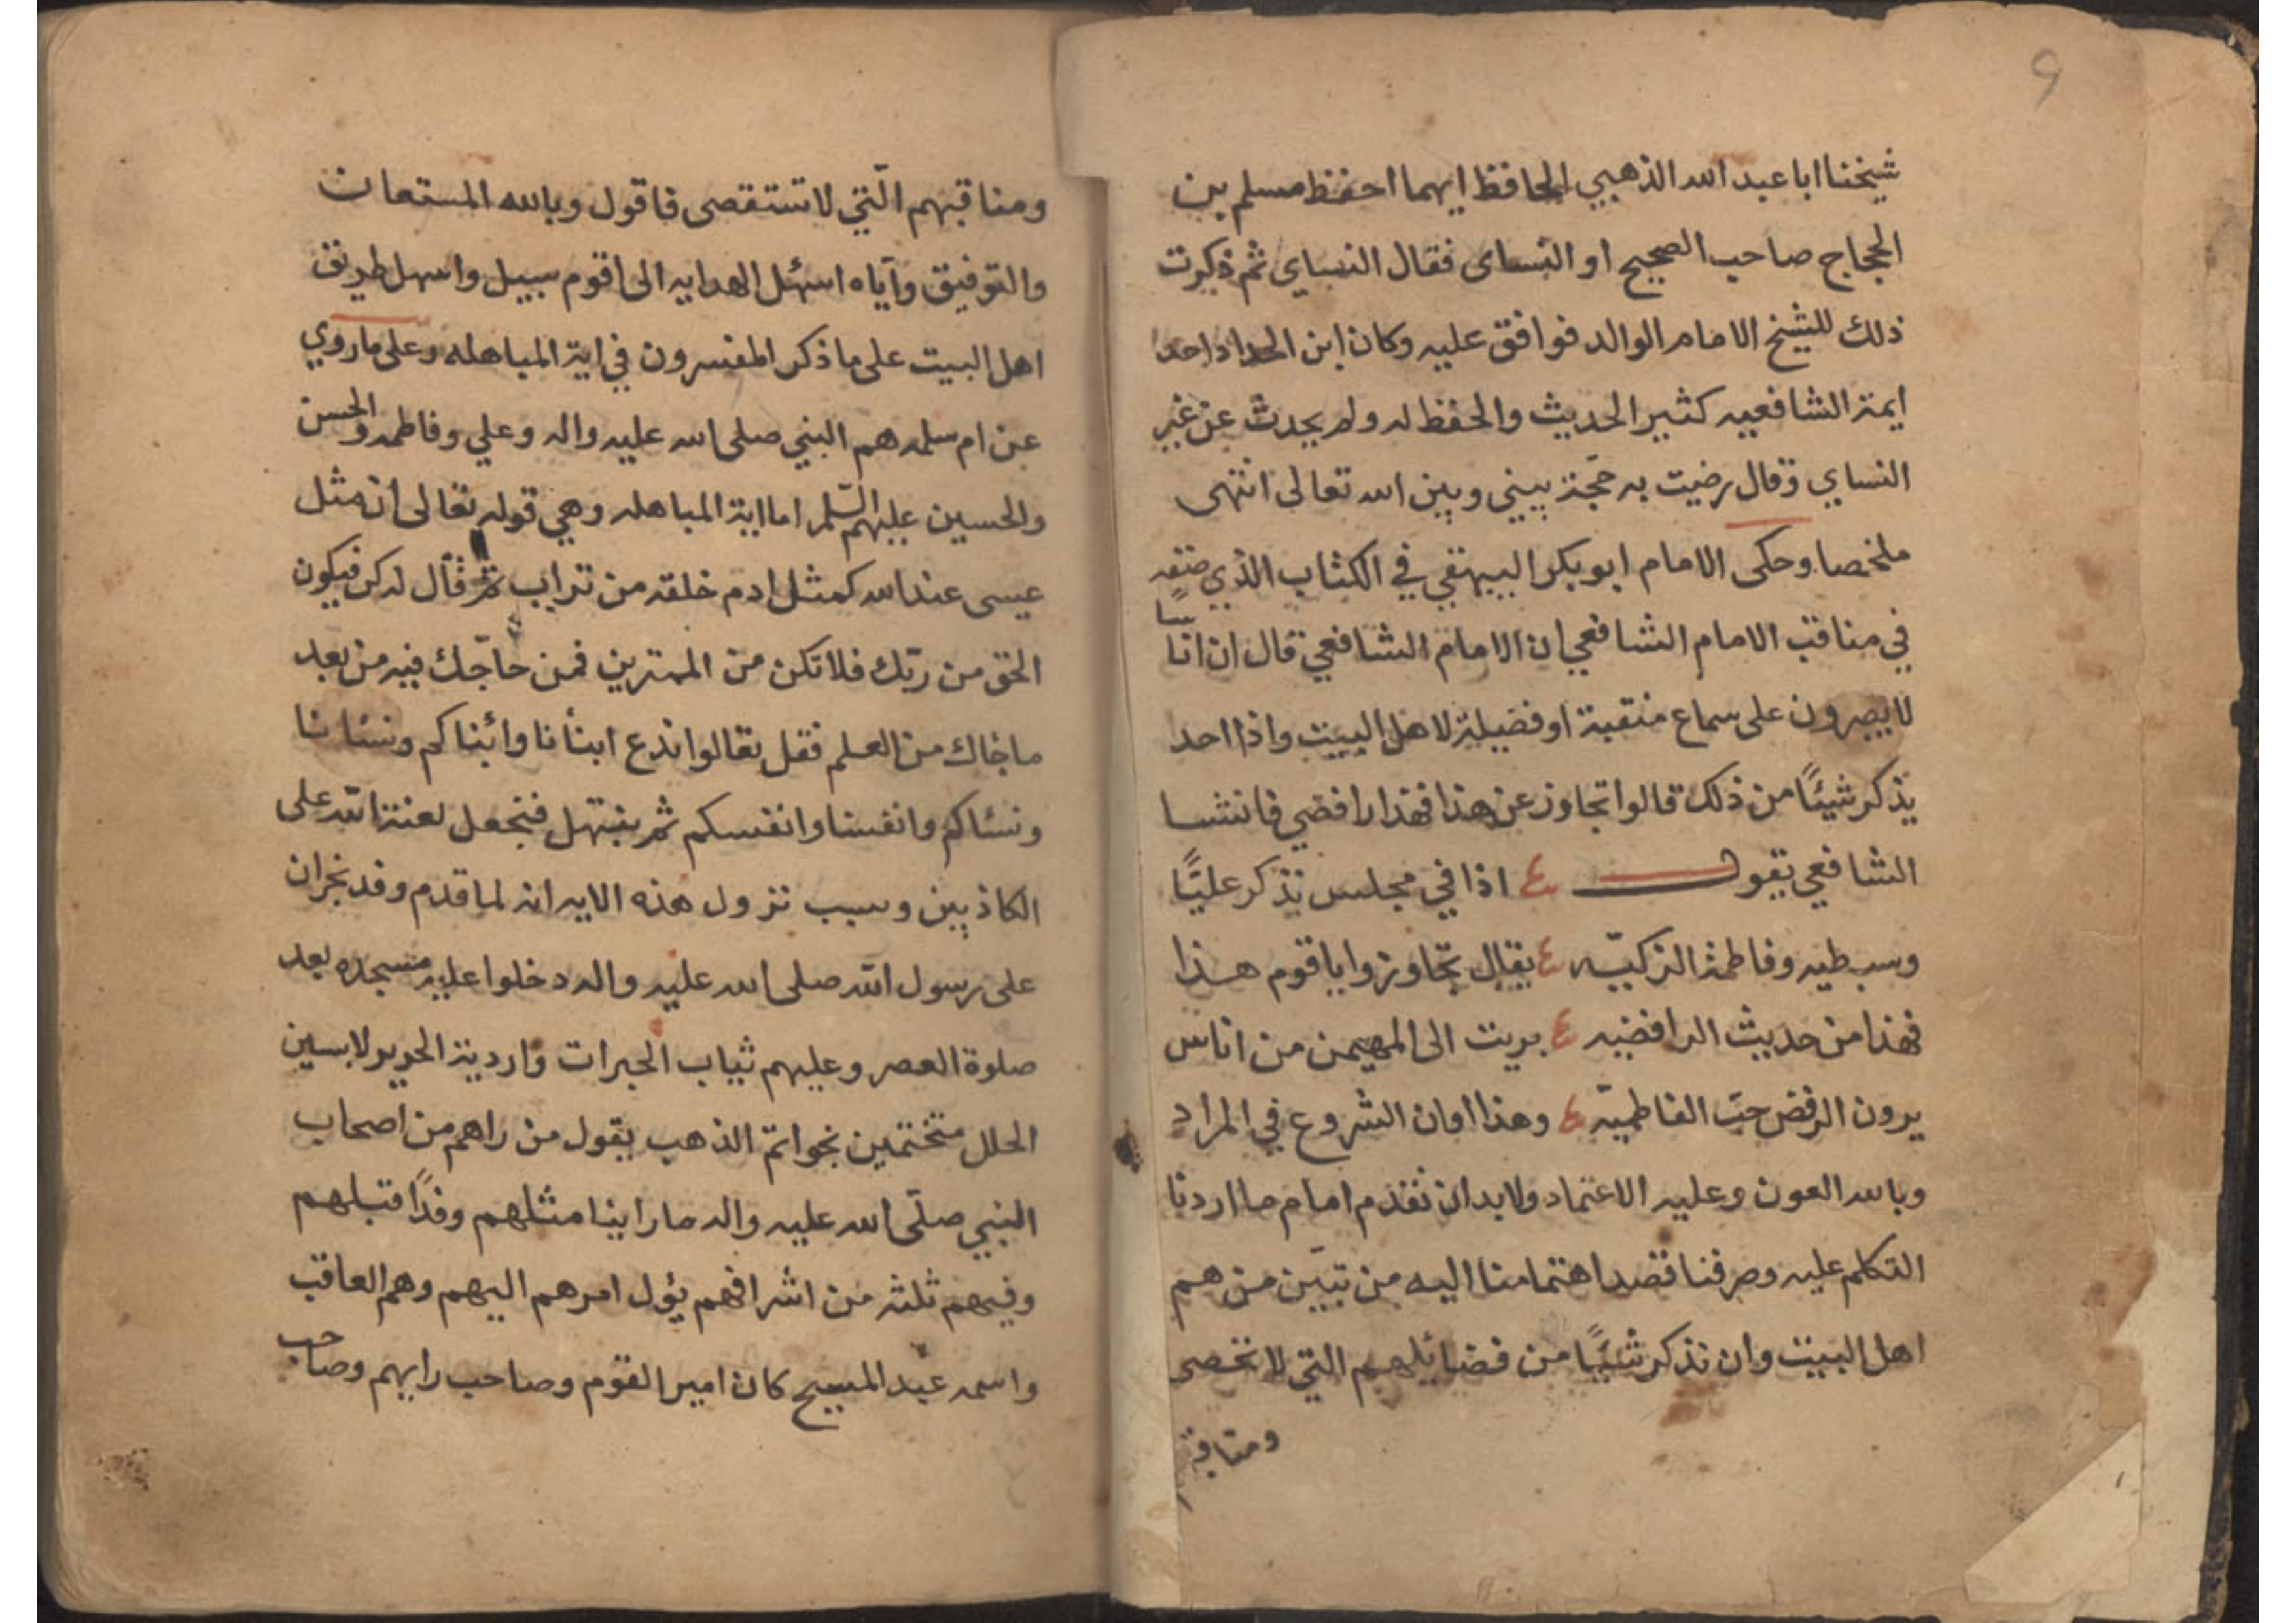 شيخنا ابا عبد الله الذهبي الحافظ ايهما احفظ مسلم بن
الحجاج صاحب الصحيح او النساى فقال النساي ثم ذكرت
ذلك للشيخ الامام الوالد فوافق عليه وكان ابن الحداد احد
ايمة الشافعيه كثير الحديث والحفظ له ولم يحدث عن غير
النساي وقال رضيت به حجة بيني وبين الله تعالى انتهى
ملخصا وحكى الامام ابو بكر البيهقي في الكتاب الذي صنفه
في مناقب الامام الشافعي ان الامام الشافعي قال ان اناسا
لا يصبرون على سماع منقبة او فضيلة لاهل البيت واذا احد
يذكر شيئًا من ذلك قالوا تجاوز عن هذا فهذا رافضي فانشا
الشافعي يقول ع اذا في مجلس نذكر عليًا
وسبطيه وفاطمة الزكيّه ع يقال تجاوزوا يا قوم هذا
فهذا من حديث الرافضيه ع بريت الى المهيمن من اناس
يرون الرفض حبّ الفاطميّه ع وهذا اوان الشروع في المراد
وبالله العون وعليه الاعتماد ولا بد ان نقدم امام ما اردنا
التكلم عليه وصرفنا قصد اهتمامنا اليه من تبيّن من هم
اهل البيت وان نذكر شيئًا من فضائلهم التي لا تحصى
ومناقبـ
9
ومناقبهم الّتي لا تستقصى فاقول وبالله المستعان
والتوفيق وآياه اسئل الهدايه الى اقوم سبيل واسهل طريق
اهل البيت على ما ذكر المفسرون في اية المباهله وعلى ما روي
عن ام سلمه هم النبي صلى الله عليه واله وعلي وفاطمه والحسن
والحسين عليهم السّلم اما اية المباهله وهي قوله تعالى ان مثل
عيسى عند الله كمثل ادم خلقه من تراب ثم قال له كن فيكون
الحق من ربّك فلا تكن من الممترين فمن حاجّك فيه من بعد
ما جاك من العلم فقل تعالوا ندع ابنأنا وابٔناكم ونسٔانا
ونسٔاكم وانفسنا وانفسكم ثم نبتهل فنجعل لعنة الله على
الكاذبين وسبب نزول هذه الايه انه لما قدم وفد نجران
على رسول الله صلى الله عليه واله دخلوا عليه مسجده بعد
صلوة العصر وعليهم ثياب الحبرات واردية الحرير لابسين
الحلل متختمين بخواتم الذهب يقول من راهم من اصحاب
النبي صلّى الله عليه واله ما راينا مثلهم وفدًا قبلهم
وفيهم ثلثه من اشرافهم يؤل امرهم اليهم وهم العاقب
واسمه عبد المسيح كان امير القوم وصاحب رايهم وصاحب